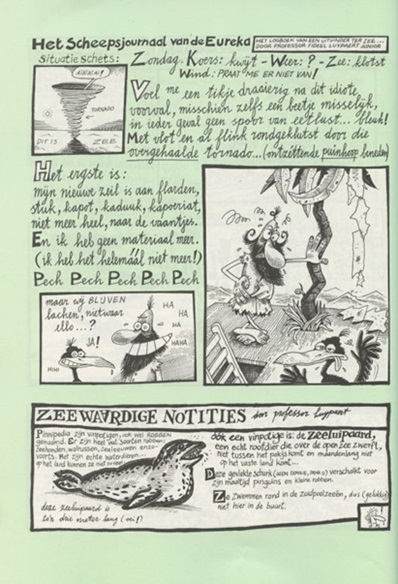 Het Scheepsjournaal van de Eureka
HET LOGBOEK VAN EEN UITVINDER TER ZEE...
DOOR PROFESSOR FIDEEL LUYPAERT JUNIOR
Situatie Schets:
TORNADO
DIT IS ZEE
Zondag. Koers: kwijt - Weer: ? - Zee: klotst
Wind: PRAAT ME ER NIET VAN!
Voel me een tikje draaierig na dit idiote
voorval, misschien zelfs een beetje misselijk,
in ieder geval geen spoor van eetlust...
Met vlot en al flink rondgeklutst door die
overgehaalde tornado... (ontzettende puinhoop beneden)
Het ergste is:
mijn nieuwe zeil is aan flarden,
stuk, kapot, kaduuk, kapoeriat,
niet meer heel, naar de vaantjes.
En ik heb geen materiaal meer.
(ik heb het helemáál niet meer!)
Pech Pech Pech Pech Pech
maar wij BLIJVEN
lachen, nietwaar
ello...?
JA!
HA
HA
HA
HAHA
ZEEWAARDIGE NOTITIES door professor Luypaert
Pinnipedia zijn vinpotigen, ook wel ROBBEN
genaamd. Er zijn heel wat soorten robben:
zeehonden, walrussen, zeeleeuwen enzo-
voorts. Het zijn echte waterdieren...
op het land kunnen ze niet
deze zeeluipaard is
zo'n drie meter lang
óók een vinpotige is: de zeeluipaard,
een echt roofdier die over de open zee zwerft,
niet tussen het pakijs komt en maandenlang niet
op het vaste land komt...
Deze gevlekte schurk verschalkt voor
zijn maaltijd pinguins en kleine robben.
Ze zwemmen rond in de zuidpoolzeeën, dus (gelukkig)
niet hier in de buurt.